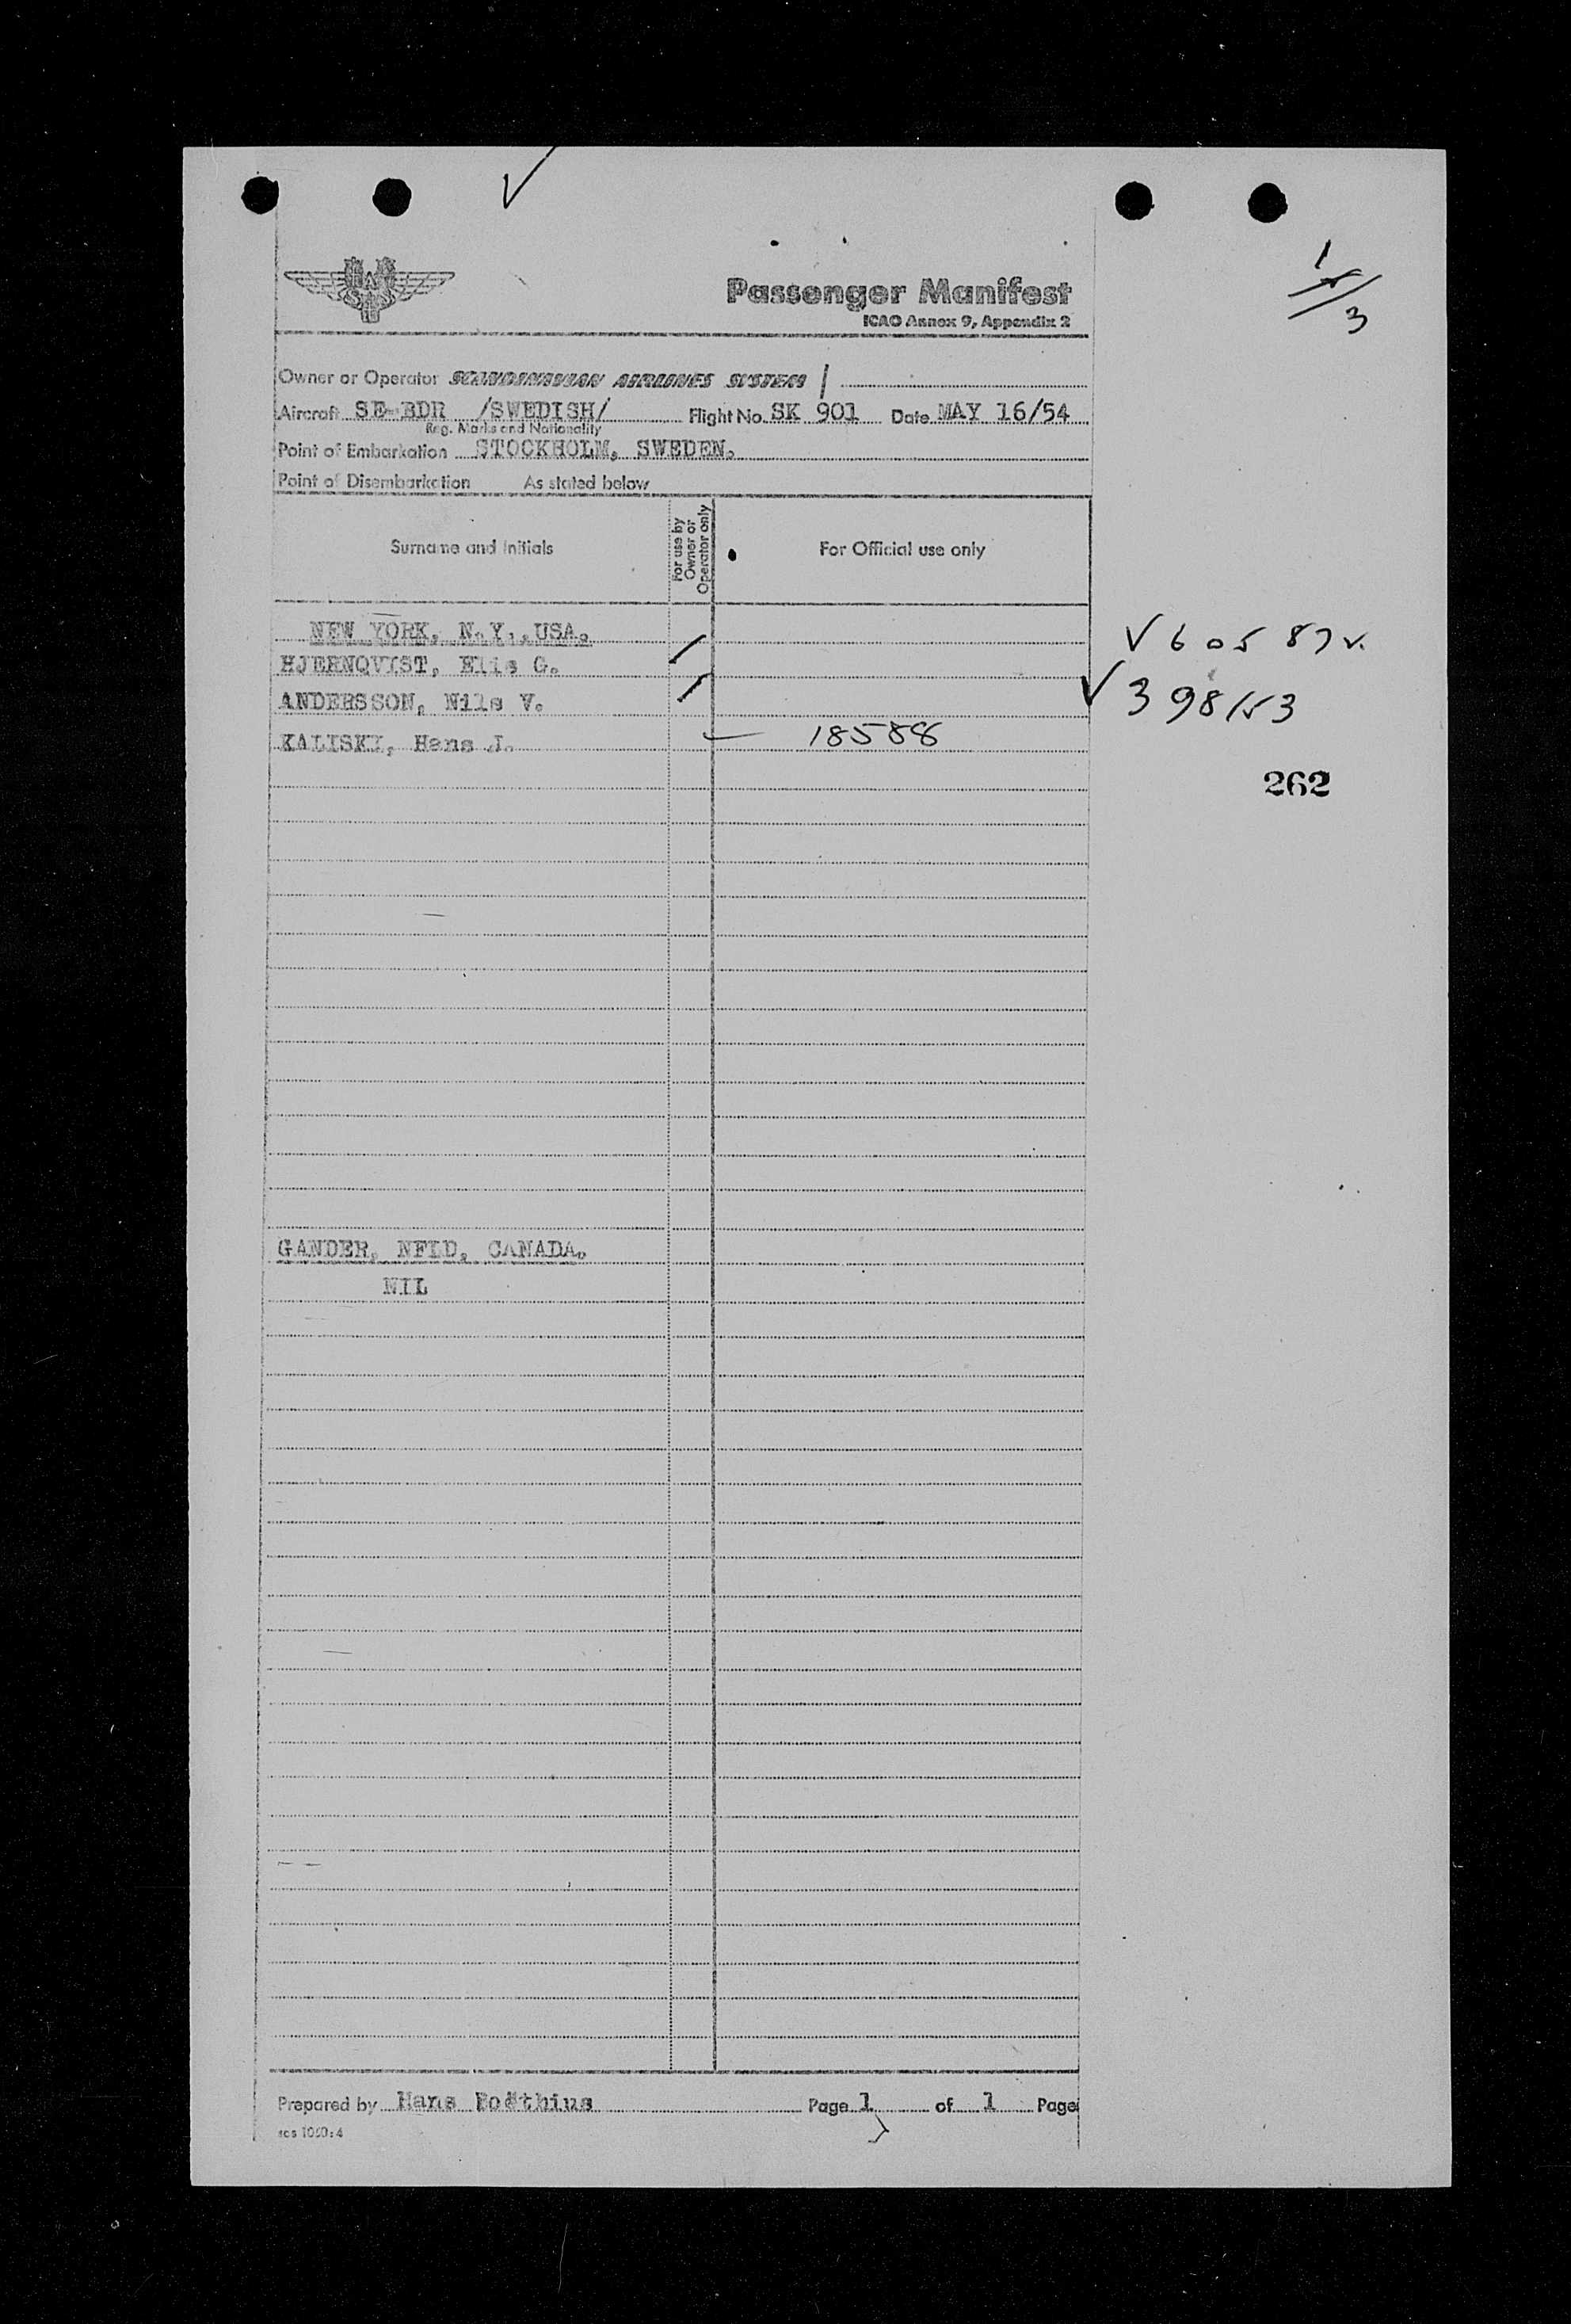 SAS
Passenger Manifest
ICAO Annex 9, Appendix 2
1/3
Owner or Operator SCANDINAVIAN AIRLINES SYSTEM
Aircraft SE-BDR /SWEDISH/ Flight No. SK 901 Date MAY 16/54
Reg. Marks and Nationality
Point of Embarkation STOCKHOLM, SWEDEN.
Point of Disembarkation As stated below
Surname and Initials
For use by Owner or Operator only
For Official use only
NEW YORK, N.Y., USA.
HJERNQVIST, Elis G.
ANDERSSON, Nils V.
KALISKI, Hans J. 18588
262
GANDER, NFLD, CANADA.
NIL
Prepared by Hans Boëthius Page 1 of 1 Page